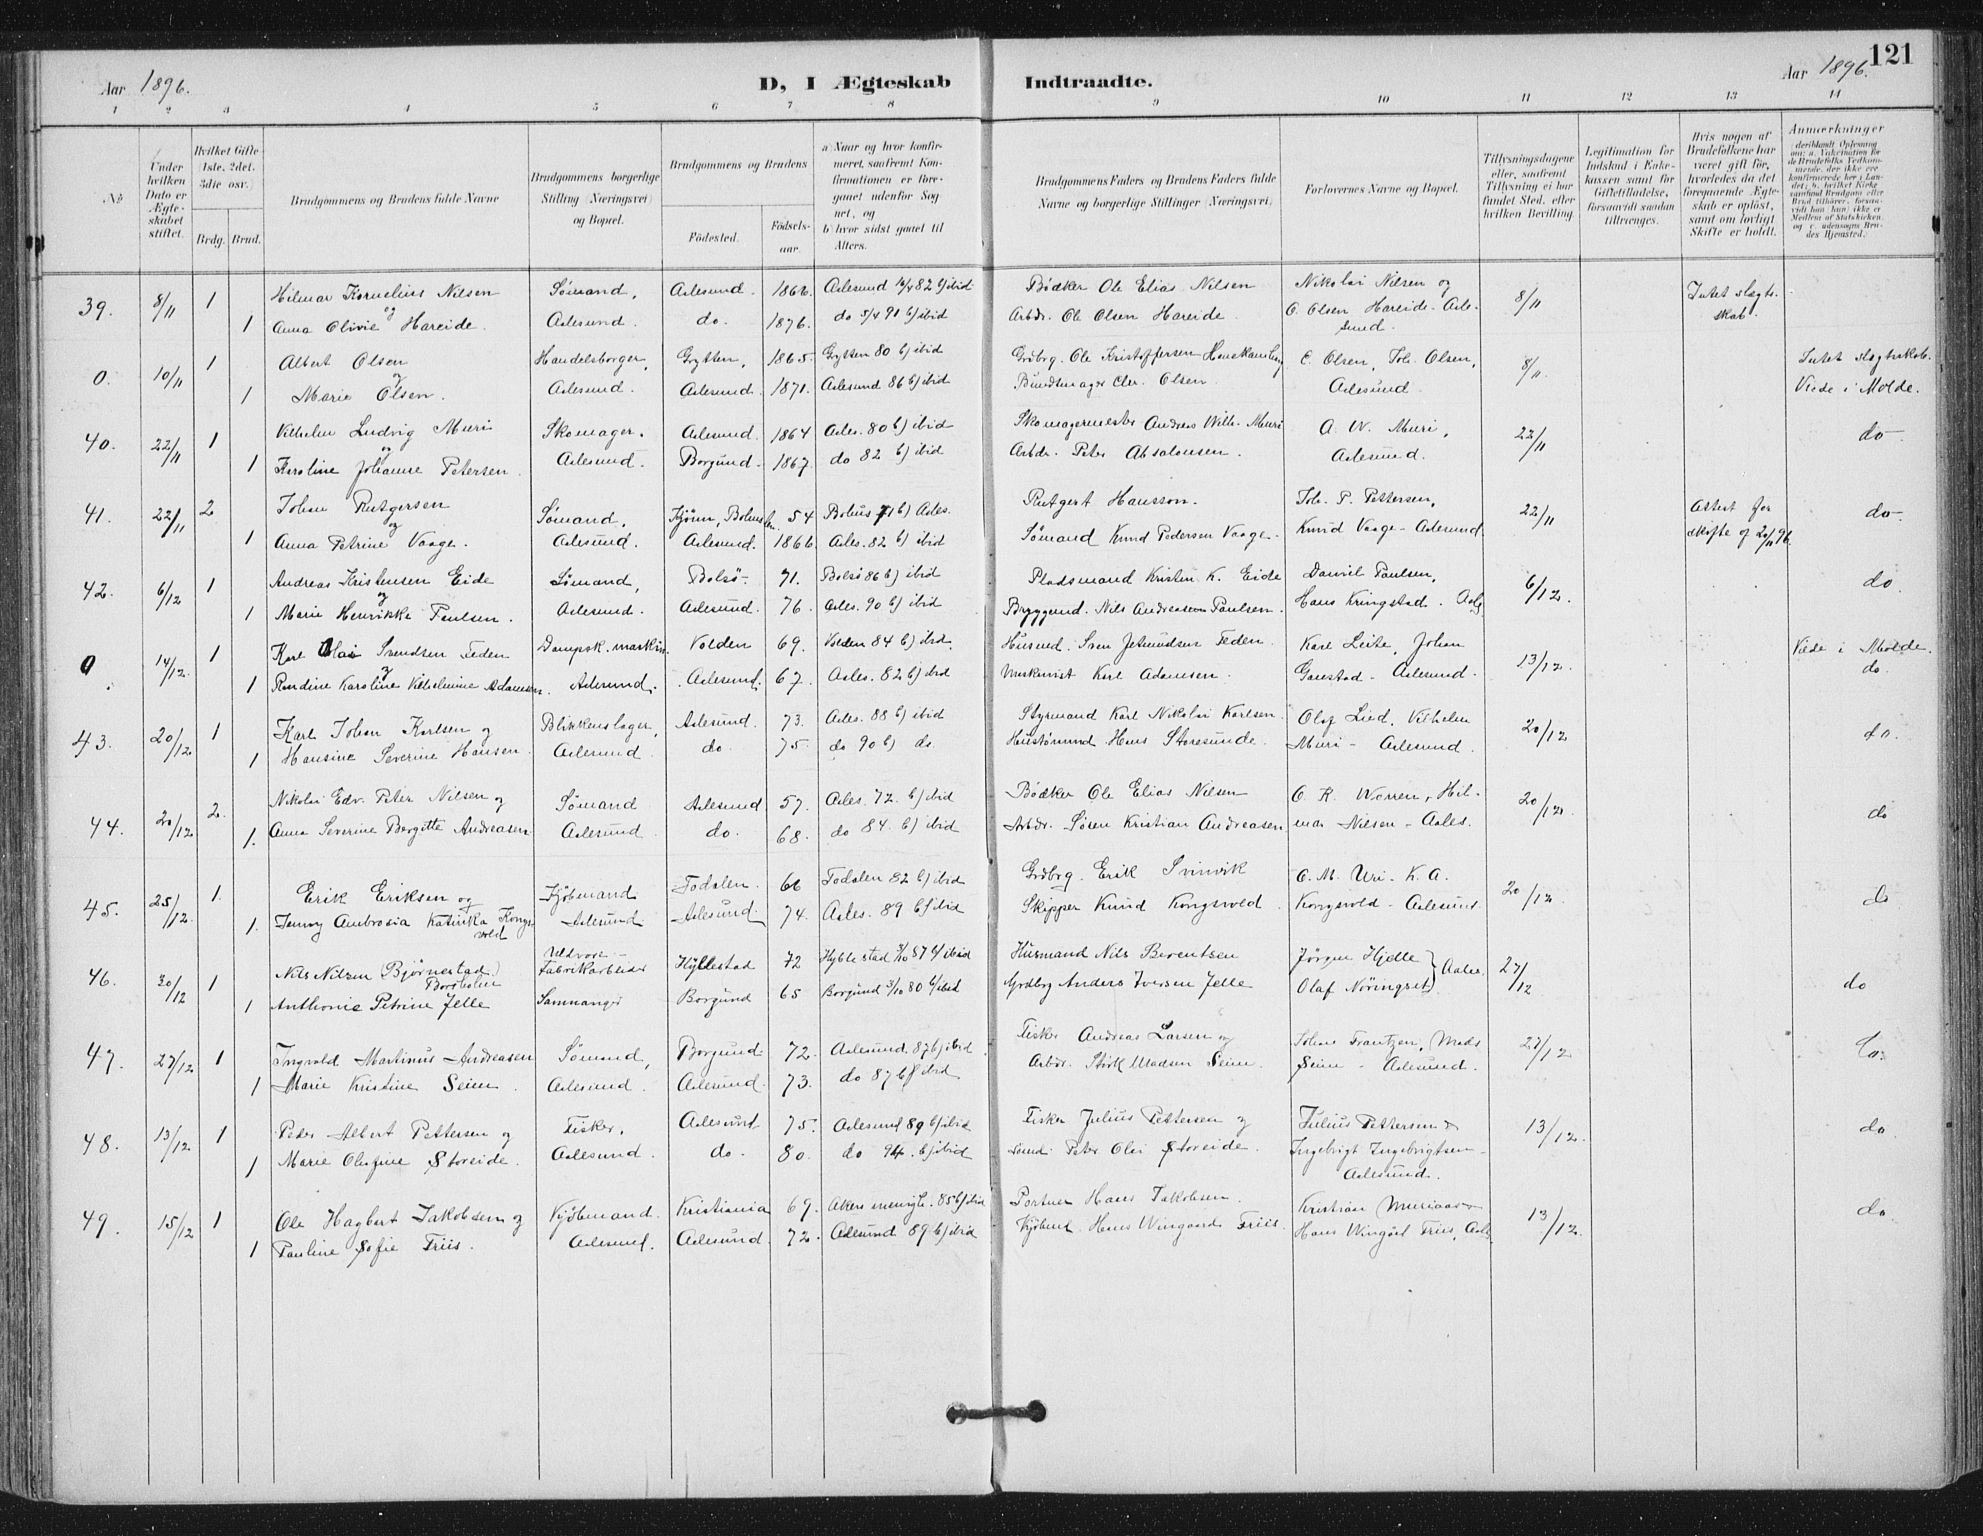 121
Aar 1896.
D, I Ægteskab Indtraadte.
Aar 1896.
1 2 3 4 5 6 7 8 9 10 11 12 13 14
No.
Under hvilken Dato er Ægteskabet stiftet.
Hvilket Gifte 1ste, 2det, 3die osv.)
Brdg. Brud.
Brudgommens og Brudens fulde Navne
Brudgommens borgerlige Stilling (Næringsvei) og Bopæl.
Brudgommens og Brudens
Fødested. Fødselsaar.
a Naar og hvor konfirmeret, saafremt Konfirmationen er foregaaet udenfor Sognet, og
b hvor sidst gaaet til Alters.
Brudgommens Faders og Brudens Faders fulde Navne og borgerlige Stillinger (Næringsvei)
Forlovernes Navne og Bopæl.
Tillysningsdagene eller, saafremt Tillysning ei har fundet Sted, efter hvilken Bevilling
Legitimation for Indskud i Enkekassen samt for Giftetilladelse, forsaavidt saadan tiltrænges.
Hvis nogen af Brudefolkene har været gift før, hvorledes da det foregaaende Ægteskab er opløst, samt om lovligt Skifte er holdt.
Anmærkninger
39. 8/11 1 Hilmar Kornelius Nilsen Sømand, Aalesund. 1866. Aalesund 16/4 82 b) ibid Bødker Ole Elias Nilsen Nikolai Nilsen og 8/11 Intet slægtskab.
og
1 Anna Olivie Hareide. Aalesund. do. 1876. do 5/4 91 b) ibid Arbdr. Ole Olsen Hareide. O. Olsen Hareide - Aalesund.
0. 10/11 1 Albert Olsen Handelsborger, Grytten, 1865. Grytten 80 b) ibid Grdbrg. Ole Kristoffersen E. Olsen, Joh. Olsen, 8/11. Intet slægtskab.
og
1 Marie Olsen. Aalesund. Aalesund. 1871. Aalesund 86 b) ibid Olsen. Aalesund Viede i Molde.
40. 22/11 1 Vilhelm Ludvig Muri Skomager. Aalesund. 1864 Aales. 80 b) ibid Skomagermester Andreas Wilh. Muri A. W. Muri, 22/11 do
og
1 Karoline Johanne Petersen. Aalesund. Borgund. 1867. do 82 b) ibid Arbdr. Peter Absalonsen. Aalesund.
41. 22/11 2 Johan Rutgersen Sømand, 54 Bohus 71 b) Aales. Rutgert Hansson. Joh. P. Pettersen, 22/11 Attest for do
og
1 Anna Petrine Vaage. Aalesund. Aalesund. 1866. Aales. 82 b) ibid Sømand Knud Pedersen Vaage. Knud Vaage - Aalesund. skifte of 20/11 96.
42. 6/12 1 Andreas Kristensen Eide Sømand, Bolsø. 71. Bolsø 86 b) ibid Pladsmand Kristen K. Eide Daniel Paulsen, 6/12. do
og
1 Marie Henrikke Paulsen. Aalesund. Aalesund. 76. Aales. 90 b) ibid Byggmd. Nils Andreassen Paulsen. Hans Kringstad. Aals
0. 14/12. 1 Karl Olai Svendsen Feden Dampsk. maskin. Volden 69. Volden 84 b) ibid. Husmd. Sven Jetmundsen Feden. Karl Leite, Johan 13/12. Viede i Molde.
og
1 Randine Karoline Vilhelmine Adamsen. Aalesund. Aalesund. 67. Aales. 82 b) ibid Karl Adamsen. Gaustad - Aalesund. do.
43. 20/12. 1 Karl Johan Karlsen og Blikkenslager, Aalesund. 73. Aales. 88 b) ibid Styrmand Karl Nikolai Karlsen. Olaf Lied, Vilhelm 20/12 do.
1 Hansine Severine Hansen. Aalesund do. 75. do 90 b) do. Hans Storesunde. Muri - Aalesund.
44. 20/12. 2. Nikolai Edv. Peter Nilsen og Sømand Aalesund 57. Aales. 72. b) ibid Bødker Ole Elias Nilsen O. K. Worren, Hil- 20/12. do
1. Anna Severine Bergitte Andreasen Aalesund do. 68. do 84. b) ibid Arbdr. Søren Kristian Andreasen mar Nilsen - Aales.
45. 25/12. 1. Erik Eriksen og Kjøbmand Todalen. 66 Todalen 82 b) ibid Grdbrg. Erik Svinvik O. M. Uri. K. A. 20/12. do
1. Jenny Ambrosia Katinka Kongsvold Aalesund Aalesund 74. Aales. 89 b) ibid Skipper Knud Kongsvold. Kongsvold - Aalesund.
46. 30/12 1 Nils Nilsen Bjørnestad Uldvare-Fabrikarbeider Hyllestad 72 Hyllestad 3/10 87 b) ibid Husmand Nils Berentsen Jørgen Hjelle } Aales. 27/12 do
1 Anthonie Petrine Jelle Samnanger Borgund 65 Borgund 3/10 80 b) ibid Grdbrg Anders Iversen Jelle Olaf Nøringset
47. 27/12 1 Ingvald Martinus Andreasen Sømand, Borgund 72. Aalesund 87 b) ibid Fisker Andreas Larsen og Johan Frantzen, Mads 27/12 do
1 Marie Kristine Seim. Aalesund. Aalesund. 73. do 87 b) ibid Arbdr. Madsen Seim. Seim - Aalesund.
48. 13/12 1 Peder Albert Pettersen og Fisker, Aalesund 75. Aalesund 89 b) ibid Fisker Julius Pettersen og Julius Pettersen & 13/12. do
1 Marie Olufine Storeide. Aalesund. do. 80. do 94. b) ibid Sømd. Peter Olai Storeide. Ingebrigt Ingebrigtsen - Aalesund.
49. 15/12 1 Ole Hagbart Jakobsen og Kjøbmand. Kristiania 69. Akers menigh. 85 b) ibid Portner Hans Jakobsen. Kristian 13/12. do
1 Pauline Sofie Friis. Aalesund. Aalesund. 72. Aalesund 89 b) ibid Kjøbmd. Hans Wingaard Friis. Hans Wingård Friis, Aals.